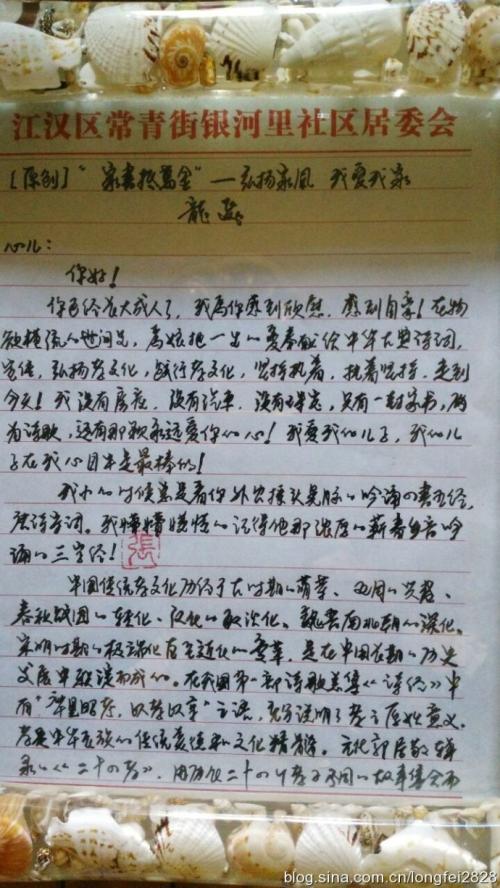 江汉区常青街银河里社区居委会
[原创]"家书抵万金"—弘扬家风 我爱我家
龍
心儿：
你好！
你已经长大成人了，我为你感到欣慰，感到自豪！在物
欲横流的世间里，为娘把一生的爱奉献给中华古典诗词，
宣传，弘扬孝文化，践行孝文化，坚持执着，执着坚持，走到
今天！我没有房产，没有汽车，没有存款，只有一封家书，
为诗歌，还有那颗永远爱你的心！我爱我的儿子，我的儿
子在我心目中是最棒的！
我小的时候总是看你外公摇头晃脑的吟诵四书五经，
唐诗宋词。我懵懵懂懂的记得他那浓厚的蕲春乡音吟
诵的三字经！
張
中国传统孝文化历经了古时期的萌芽、西周的兴盛、
春秋战国的转化、汉代的政治化、魏晋南北朝的深化、
宋明时期的极端化直至近代的变革，是在中国长期的历史
发展中积淀而成的。在我国第一部诗歌总集《诗经》中
有"率見昭考，以孝以享"之语，充分说明了孝之原始意义。
孝是中华民族的传统美德和文化精髓。元代郭居敬辑
录的《二十四孝》，由历代二十四个孝子不同的故事集合而
blog.sina.com.cn/longfei2828